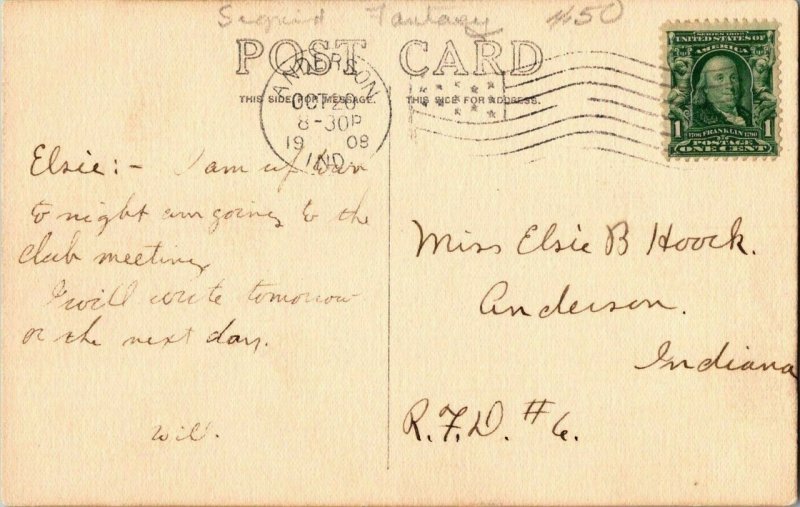 Signid Fantasy #50
POST CARD
THIS SIDE FOR MESSAGE. THIS SIDE FOR ADDRESS.
ANDERSON
OCT 20
8-30P
19 08
IND.
SERIES 1902
UNITED STATES OF
AMERICA
1706 FRANKLIN 1790
1 1
POSTAGE
ONE CENT
Elsie:- I am up town
to night am going to the
club meeting
I will write tomorrow
or the next day.
Will.
Miss Elsie B Hoock.
Anderson.
Indiana
R.F.D. #6.